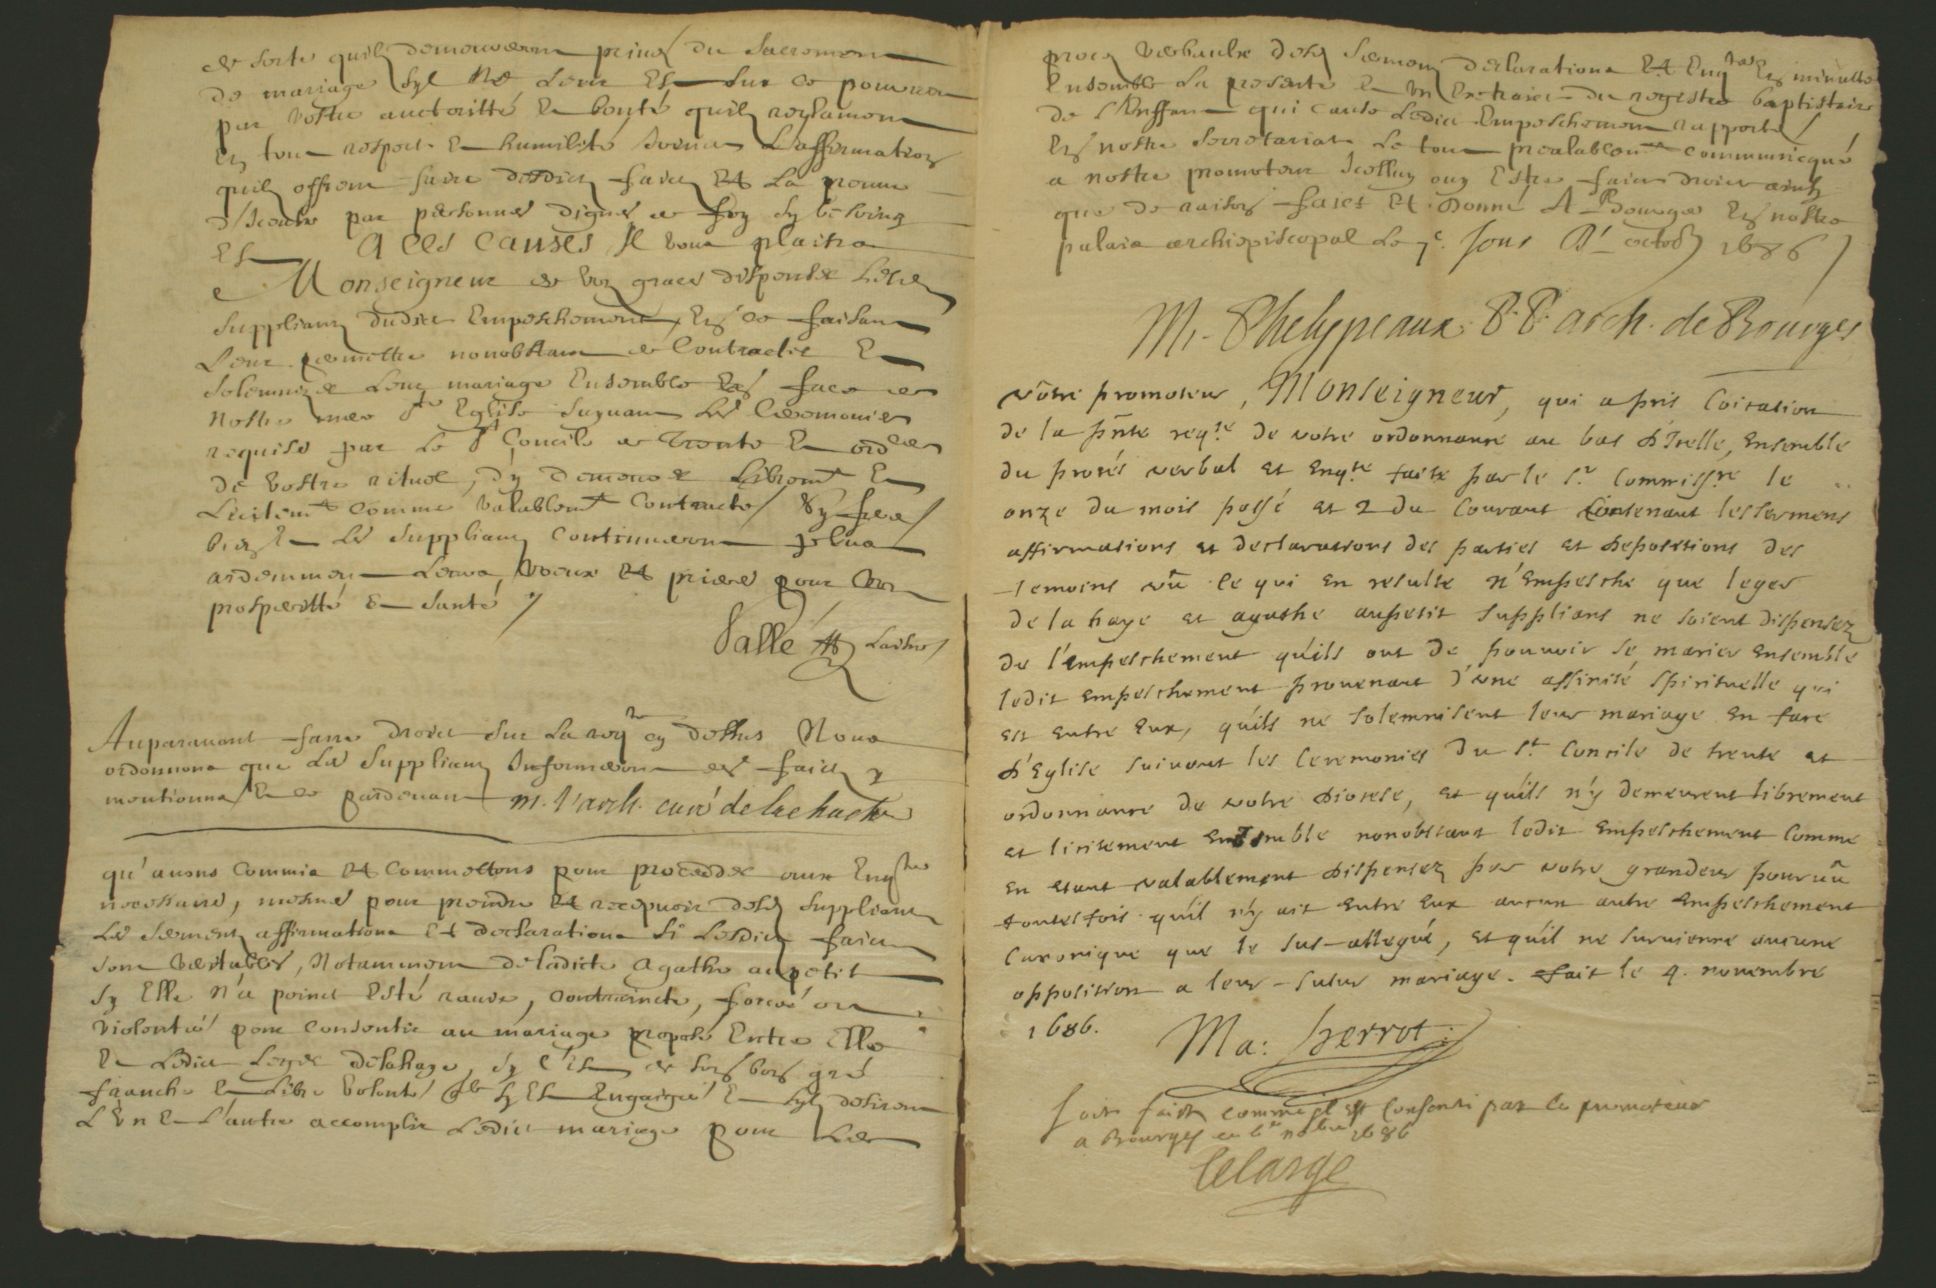 de sorte quilz demeureront privez du Sacrement
de mariage syl ne leur est sur ce pourveu
par vostre auctoritté et bonté quilz reclament
en tout respect et humilité soubz L'affirmation
quilz offrent faire desdictz faictz et La preuve
d'Iceulx par personnes dignes de foy sy besoing
Est A CES CAUSES Il vous plaira
Monseigneur de voz graces dispenser Lesdictz
Supplians dudict Empeschement, En ce faisant
Leur permettre nonobstant de Contracter Et
Solemnizer Leur mariage Ensemble En face de
Nostre mere ste Eglise suyvant Les Ceremonies
requises par Le st Concile de Trente Et ordces
De vostre rituel, d'y demeurer Libremt Et
Licitemt comme valablemt contracté / Sy ferez
bien Et Les Supplians continueront plus
ardemment Leurs voeux et prieres pour Vos
prosperitté Et santé /
Vallé
Auparavant faire droict sur La reqte cy dessus Nous
ordonnons que Les Supplians Informeront des faictz y
mentionnez Et ce pardevant m. l'arch. curé de la chastre
qu'avons Commis et Commettons pour proceder aux Enqtes
necessaires, mesmes pour prendre et recepvoir desdz Supplians
Les sermentz affirmations et declarations si Lesdictz faictz
sont veritables, Notamment de ladicte Agathe aupetit
sy Elle n'a poinct Esté ravie, contraincte, forcée ou
violentée pour consentir au mariage proposé Entre Elle
Et Ledict Leger delahaye, sy c'Est de son bon gré
franche Et Libre volonté qle sy Est Engaigée Et sylz desirent
L'Un Et L'autre accomplir Ledict mariage pour Les
proces verbaulx desdz sermens declarations et Enqtes En minutte
Ensemble La presente Et Un Extraict du registre baptistaire
de L'Enffant qui cause Ledict Empeschement rapportez
En nostre Secretariat Le tout prealablemt communicqué
a nostre promoteur Icelluy ouy Estre faict droict ainsy
que de raison faict et Donné A Bourges En nostre
palais archiepiscopal Le 7e. Jour d'octob 1686 /
M. Phelypeaux. P. P. arch. de Bourges
vôtre promoteur, Monseigneur, qui a pris Coication
de la pñte reqte de votre ordonnance au bas d'Icelle, Ensemble
du procés verbal et Enqte faite par le Sr Commissre le
onze du mois passé et 2 du Courant Contenant les sermens
affirmations et declarations des parties et depositions des
temoins vû ce qui En resulte N'Empesche que leger
de la haye et agathe aupetit supplians ne soient dispensez
de l'empeschement qu'ils ont de pouvoir se marier Ensemble
ledit empeschement provenant d'une affinité spirituelle qui
est entre Eux, qu'ils ne solemnisent leur mariage En face
d'Eglise suivant les Ceremonies Du St Concile de trente et
ordonnance de votre diocese, et qu'ils n'y demeurent librement
et licitement Ensemble nonobstant ledit Empeschement Comme
En etant valablement dispensez par votre grandeur pourvû
toutesfois qu'il n'y ait entre Eux aucun autre Empeschement
Canonique que le sus-allegué, et qu'il ne survienne aucune
opposition a leur futur mariage. fait le 4. novembre
1686.
Ma: Perrot:
soit faict comme il est consenti par le promoteur
a Bourges ce 6e nobre 1686
Lelarge